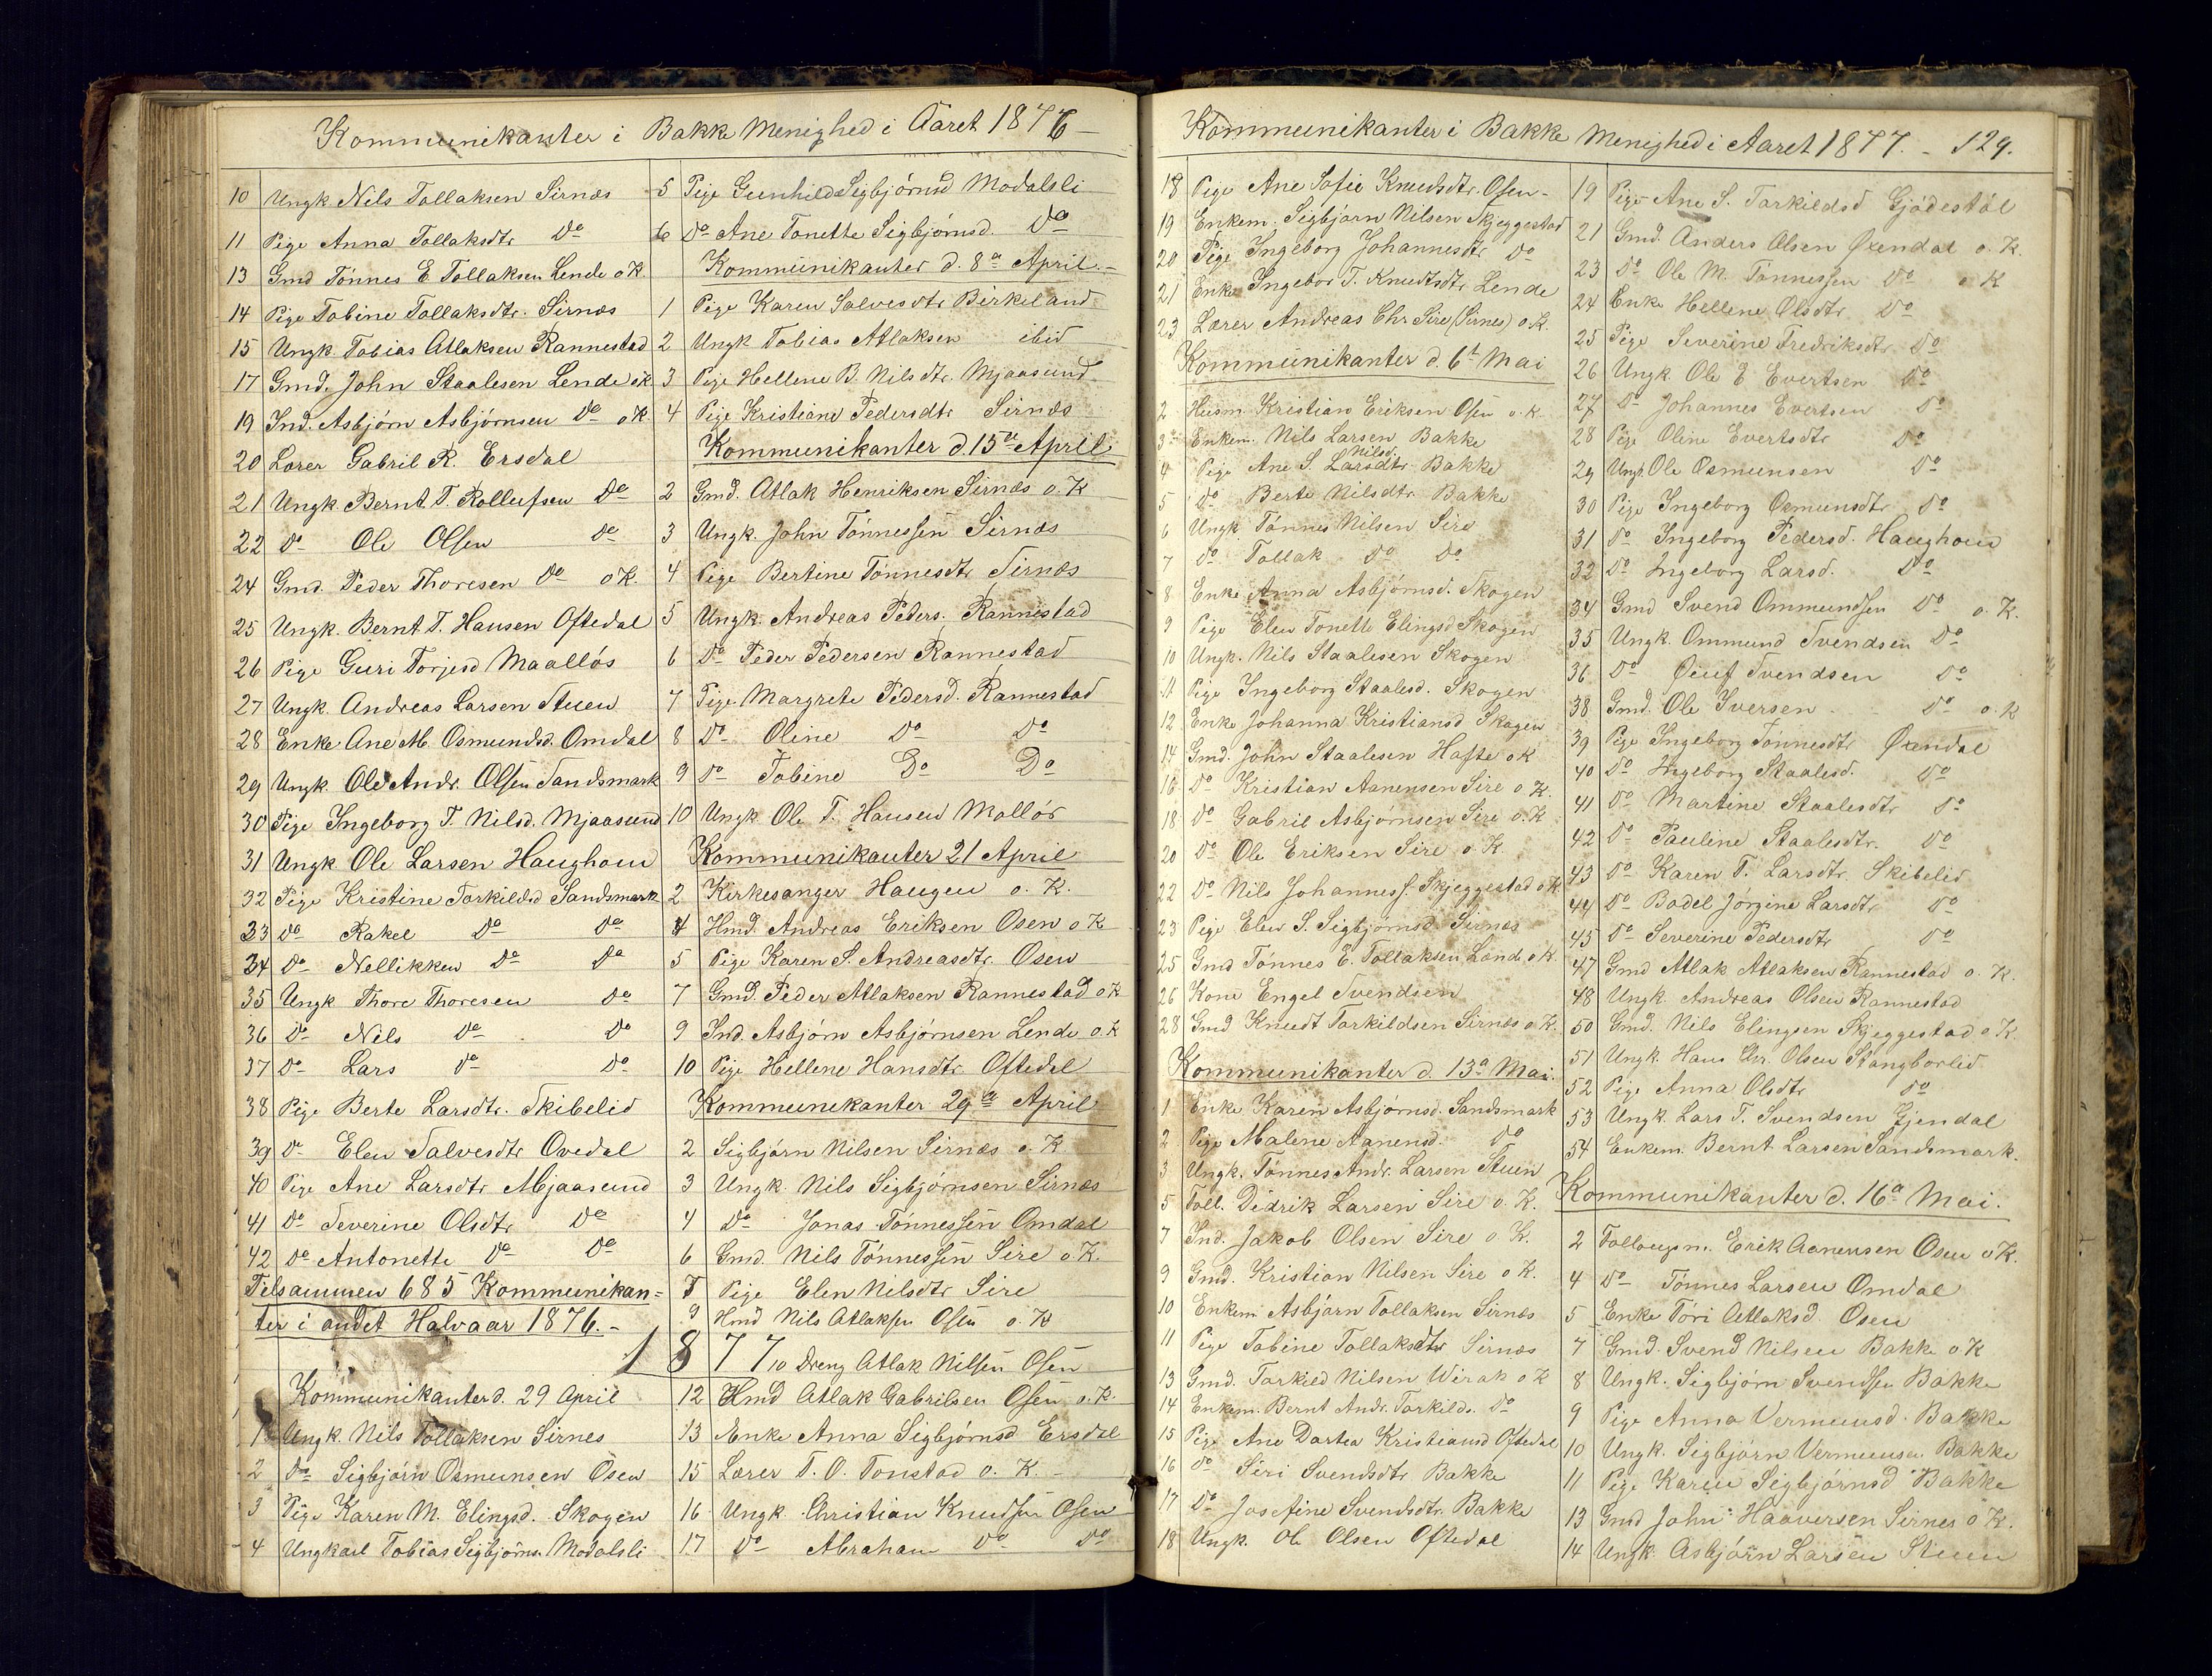 Kommunikanter i Bakke Menighed i Aaret 1876 –
10 Ungk Nils Tollaksen Sirnæs
11 Pige Anna Tollaksdtr Do
13 Gmd Tónnes E Tollaksen Lende o K.
14 Pige Tobine Tollaksdtr. Sirnæs
15 Ungk. Tobias Atlaksen Rannestad
17 Gmd. John Staalesen Lende o K
19 Ind. Asbjórn Asbjórnsen Do o K.
20 Lærer Gabril R. Ersdal
21 Ungk. Bernt T. Rollufsen Do
22 Do Ole Olsen Do
24 Gmd. Peder Thoresen Do o K.
25 Ungk. Bernt T. Hansen Oftedal
26 Pige Guri Torjesd Maallós
27 Ungk. Andreas Larsen Stuen
28 Enke Ane M. Osmundsd. Omdal
29 Ungk. Ole Andr. Olsen Sandsmark
30 Pige Ingeborg T. Nilsd. Mjaasund
31 Ungk Ole Larsen Haughom
32 Pige Kristine Torkildsd Sandsmark
33 Do Rakel Do Do
34 Do Nellikken Do Do
35 Ungk Thore Thoresen Do
36 Do Nils Do Do
37 Do Lars Do Do
38 Pige Berte Larsdtr. Skibelid
39 Do Elen Salvesdtr Ovedal
40 Pige Ane Larsdtr Mjaasund
41 Do Severine Olsdtr Do
42 Do Antonette Do Do
Tilsammen 685 Kommunikan=
ter i andet Halvaar 1876. –
1877
Kommunikanter d. 29 April
1 Ungk. Nils Tollaksen Sirnes
2 Do Sigbjórn Osmunsen Osen
3 Pige Karen M. Elingsd. Skogen
4 Ungkarl Tobias Sigbjórns. Modalsli
5 Pige Gunhild Sigbjórnsd Modalsli
6 Do Ane Tonette Sigbjórnsd. Do
Kommunikanter d. 8a April. –
1 Pige Karen Salvesdtr Birkeland
2 Ungk Tobias Atlaksen ibid
3 Pige Hellene B. Nilsdtr. Mjaasund
4 Pige Kristiane Pedersdtr Sirnæs
Kommunikanter d 15de April
2 Gmd. Atlak Henriksen Sirnæs o. K
3 Ungk. John Tónnessen Sirnæs
4 Pige Bertine Tónnesdtr Sirnæs
5 Ungk. Andreas Peders. Rannestad
6 Do Peder Pedersen Rannestad
7 Pige Margrete Pedersd. Rannestad
8 Do Oline Do Do
9 Do Tobine Do Do
10 Ungk Ole T. Hansen Mallós
Kommunikanter 21 April
2 Kirkesanger Haugen o. K.
4 Hmd. Andreas Eriksen Osen o K
5 Pige Karen S. Andreasdtr. Osen
7 Gmd. Peder Atlaksen Rannestad o K
9 Ind. Asbjórn Asbjórnsen Lende o. K
10 Pige Hellene Hansdtr Oftedal
Kommunikanter 29de April
2 Sigbjórn Nilsen Sirnæs o. K
3 Ungk. Nils Sigbjórnsen Sirnæs
4 Do Jonas Tónnessen Omdal
6 Gmd. Nils Tónnessen Sire o. K.
7 Pige Elen Nilsdtr Sire
9 Hmd Nils Atlaksen Osen o. K
10 Dreng Atlak Nilsen Osen
12 Hmd Atlak Gabrilsen Osen o. K.
13 Enke Anna Sigbjórnsd Ersdal
15 Lærer T. O. Tonstad o. K. –
16 Ungk. Christian Knudsen Osen
17 Do Abraham Do Do
Kommunikanter i Bakke Menighed i Aaret 1877. – 129.
18 Pige Ane Sofie Knudsdtr. Osen –
19 Enkem. Sigbjórn Nilsen Skjeggestad
20 Pige Ingeborg Johannesdtr Do
21 Enke Ingebor T. Knudtsdtr Lende
23 Lærer Andreas Chr. Sire (Sirnes) o K.
Kommunikanter d. 6t Mai
2 Husm. Kristian Eriksen Osen o. K.
3 Enkem. Nils Larsen Bakke
Nilsd.
4 Pige Ane S. Larsdtr Bakke
5 Do Berte Nilsdtr. Bakke
6 Ungk Tónnes Nilsen Sire
7 Do Tollak Do Do
8 Enke Anna Asbjórnsd. Skogen
9 Pige Elen Tonette Elingsd Skogen
10 Ungk. Nils Staalesen Skogen
11 Pige Ingeborg Staalesd. Skogen
12 Enke Johanna Kristiansd Skogen
14 Gmd. John Staalesen Hafte o K
16 Do Kristian Aanensen Sire o K.
18 Do Gabril Asbjórnsen Sire o. K
20 Do Ole Eriksen Sire o K
22 Do Nils Johanness. Skjeggestad o K
23 Pige Elen S. Sigbjórnsd. Sirnæs
25 Gmd Tónnes E. Tollaksen Lande o K.
26 Kone Engel Svendsen
28 Gmd Knudt Torkildsen Sirnæs o K.
Kommunikanter d. 13a Mai.
1 Enke Karen Asbjórnsd. Sandsmark
2 Pige Malene Aanensd. Do
3 Ungk. Tónnes Andr. Larsen Stuen
5 Foll. Didrik Larsen Sire o. K.
7 Ind. Jakob Olsen Sire o. K.
9 Gmd. Kristian Nilsen Sire o K.
10 Enkem. Asbjórn Tollaksen Sirnæs
11 Pige Tobine Tollaksdtr Sirnæs
13 Gmd. Torkild Nilsen Wirak o K
14 Enkem. Bernt Andr. Torkilds. Do
15 Pige Ane Dartea Kristiansd Oftedal
16 Do Siri Svendsdtr Bakke
17 Do Josefine Svendsdtr. Bakke
18 Ungk. Ole Olsen Oftedal
19 Pige Ane S. Torkildsd Gjódestól
21 Gmd. Anders Olsen Øxendal o. K.
23 Do Ole M. Tónnessen Do o K
24 Enke Hellene Olsdtr Do
25 Pige Severine Fredriksdtr. Do
26 Ungk. Ole E Evertsen Do
27 Do Johannes Evertsen Do
28 Pige Oline Evertsdtr Do
29 Ungk. Ole Osmunsen Do
30 Pige Ingeborg Osmunsdtr Do
31 Do Ingeborg Pedersd. Haughom
32 Do Ingeborg Larsd. Do
34 Gmd Svend Ommundsen Do o. K.
35 Ungk. Ommund Svendsen Do
36 Do Svendsen Do
38 Gmd. Ole Iversen Do o. K
39 Pige Ingeborg Tónnesdtr Øxendal
40 Do Ingeborg Staalesd. Do
41 Do Martine Staalesdtr Do
42 Do Pauline Staalesdtr. Do
43 Do Karen T. Larsdtr. Skibelid
44 Do Bodel Jórgine Larsdtr Do
45 Do Severine Pedersdtr Do
47 Gmd Atlak Atlaksen Rannestad o. K.
48 Ungk. Andreas Olsen Rannestad
50 Gmd. Nils Elingsen Skjeggestad o K.
51 Ungk. Hans Chr. Olsen Stangborlid
52 Pige Anna Olsdtr Do
53 Ungk. Lars T. Svendsen Gjendal
54 Enkem. Bernt Larsen Sandsmark.
Kommunikanter d. 16a Mai.
2 Erik Aanensen Osen o K.
4 Do Tónnes Larsen Omdal
5 Enke Tóri Atlaksd. Osen
7 Gmd. Svend Nilsen Bakke o K
8 Ungk. Sigbjórn Svendsen Bakke
9 Pige Anna Vermunsd. Bakke
10 Ungk. Sigbjórn Vermunsen Bakke
11 Pige Karen Sigbjórnsd Bakke
13 Gmd John Haaversen Sirnes o K.
14 Ungk. Asbjórn Larsen Stuen